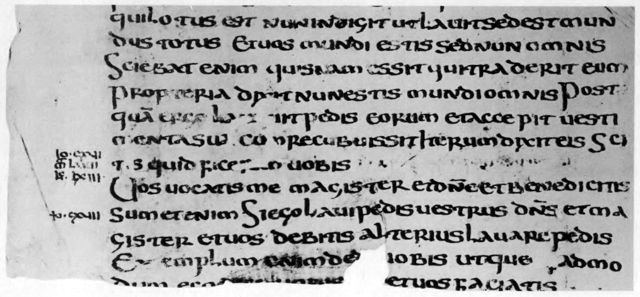 qui lotus est nun indigit ut lavit sed est mun
dus totus et vos mundi estis sed nun omnis
Sciebat enim quisnam essit qui traderit eum
propteria dixit nun estis mundi omnis Post
quā pedis eorum et accepit vesti
menta recubuissit iterum dixit eis Sci
quid vobis
Vos vocatis me magister et dn̄e et benedicitis
Sum etenim Si ego lavi pedis vestrus dn̄s et ma
gister et vos debitis alterius lavare pedis
Exemplum enim vobis ut admo
dum et vos faciatis